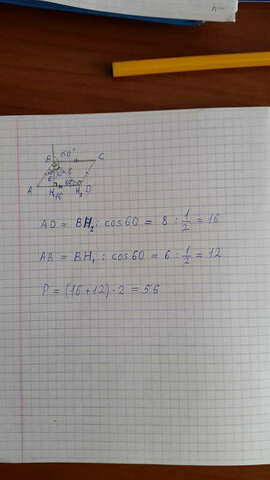 60°
B C
A H₁ H₂ D
16
AD = BH₂ : cos60 = 8 : 1/2 = 16
AB = BH₁ : cos60 = 6 : 1/2 = 12
P = (16+12)·2 = 56